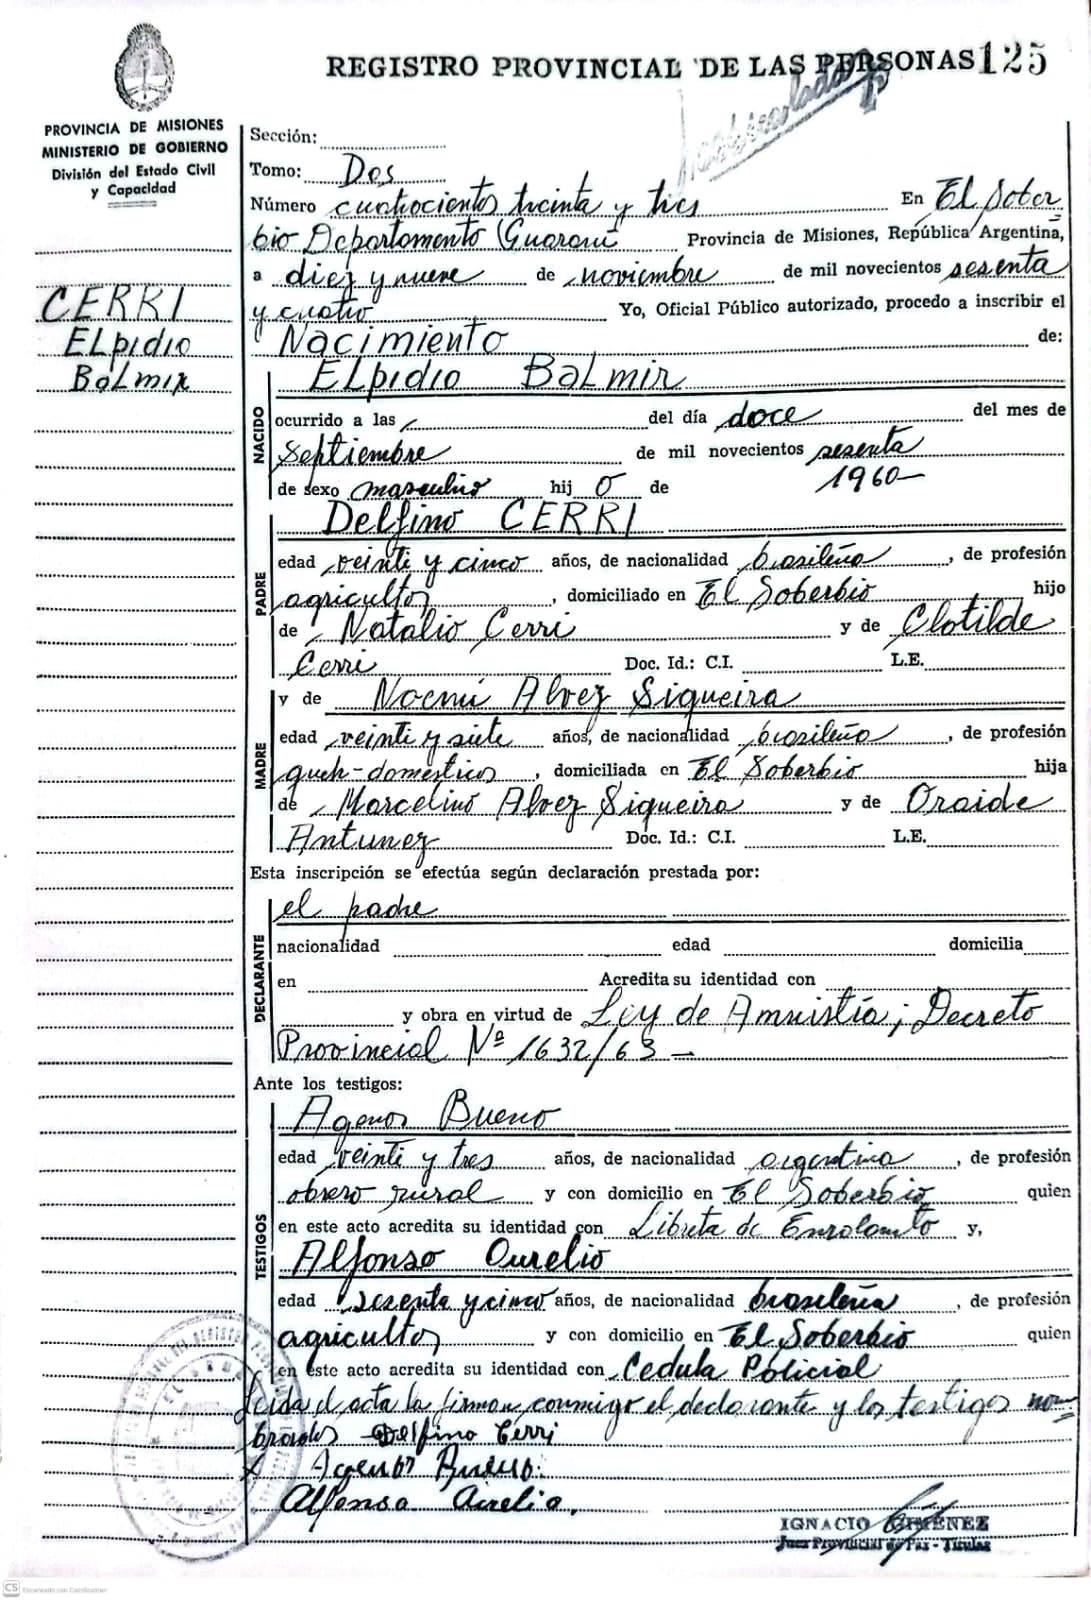 REGISTRO PROVINCIAL DE LAS PERSONAS 125
PROVINCIA DE MISIONES
MINISTERIO DE GOBIERNO
División del Estado Civil
y Capacidad
CERRI
ELpidio
BaLmir
Sección:
Tomo: Dos
Número cuatrocientos treinta y tres En El Sober
bio Departamento Guaraní Provincia de Misiones, República Argentina,
a diez y nueve de noviembre de mil novecientos sesenta
y cuatro Yo, Oficial Público autorizado, procedo a inscribir el
Nacimiento de:
ELpidio BaLmir
NACIDO
ocurrido a las del día doce del mes de
Septiembre de mil novecientos sesenta
de sexo masculino hij o de 1960-
Delfino CERRI
PADRE
edad veinte y cinco años, de nacionalidad brasileña, de profesión
agricultor, domiciliado en El Soberbio hijo
de Natalio Cerri y de Clotilde
Cerri Doc. Id.: C.I. L.E.
y de Noemí Alvez Siqueira
MADRE
edad veinte y siete años, de nacionalidad brasileña, de profesión
queh-domésticos, domiciliada en El Soberbio hija
de Marcelino Alvez Siqueira y de Oraide
Antunez Doc. Id.: C.I. L.E.
Esta inscripción se efectúa según declaración prestada por:
el padre
DECLARANTE
nacionalidad edad domicilia
en Acredita su identidad con
y obra en virtud de Ley de Amnistía; Decreto
Provincial Nº 1632/63 -
Ante los testigos:
Agenor Bueno
TESTIGOS
edad veinti y tres años, de nacionalidad argentina, de profesión
obrero rural y con domicilio en El Soberbio quien
en este acto acredita su identidad con Libreta de Enrolamto y,
Alfonso Aurelio
edad sesenta y cinco años, de nacionalidad brasileña, de profesión
agricultor y con domicilio en El Soberbio quien
en este acto acredita su identidad con Cedula Policial
Leida el acta la firman conmigo el declarante y los testigos nom
brados Delfino Cerri
Agenor Bueno.
Alfonso Aurelio.
IGNACIO GIMENEZ
Juez Provincial de Paz - Titular
CS Escaneado con CamScanner